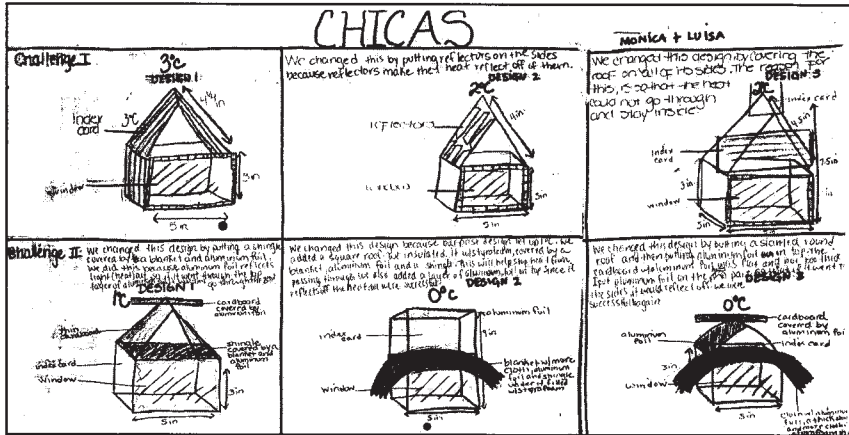 CHICAS
MONICA + LUISA
Challenge I
3°C
DESIGN 1
Index
card
3°C
window
4 1/4 in
3in
5 in
We changed this by putting reflectors on the sides
because reflectors make the heat reflect off of them.
DESIGN 2
2°C
reflectors
4in
window
3in
5in
We changed this design by covering the
roof on all of its sides. The reason for
DESIGN 3
this, is so that the heat
could not go through
and stay inside.
2°C
index card
4.5in
Index
card
2.5in
3in
window
5in
5in
Challenge II:
We changed this design by putting a shingle
covered by a blanket and aluminum foil.
We did this because aluminum foil reflects
DESIGN 1
1°C
cardboard
covered by
aluminum foil
shingle
covered by a
blanket and
aluminum
foil
index card
window
3in
5in
We changed this design because our past design let up 1°C. We
added a square roof but insulated it w/styrofoam, covered by a
blanket, aluminum foil and a shingle. This will help stop heat from
passing through. We also added a layer of aluminum foil on top since it
reflects off the heat.
DESIGN 2
0°C
aluminum foil
index
card
blanket w/more
cloth, aluminum
foil and shingle
under it filled
w/styrofoam
window
5in
We changed this design by putting a slanted round
roof and then putting aluminum foil on top. The
cardboard w/aluminum foil was flat and not too thick.
successful again
DESIGN 3
0°C
cardboard
covered by
aluminum foil
aluminum
foil
index card
3in
window
5in